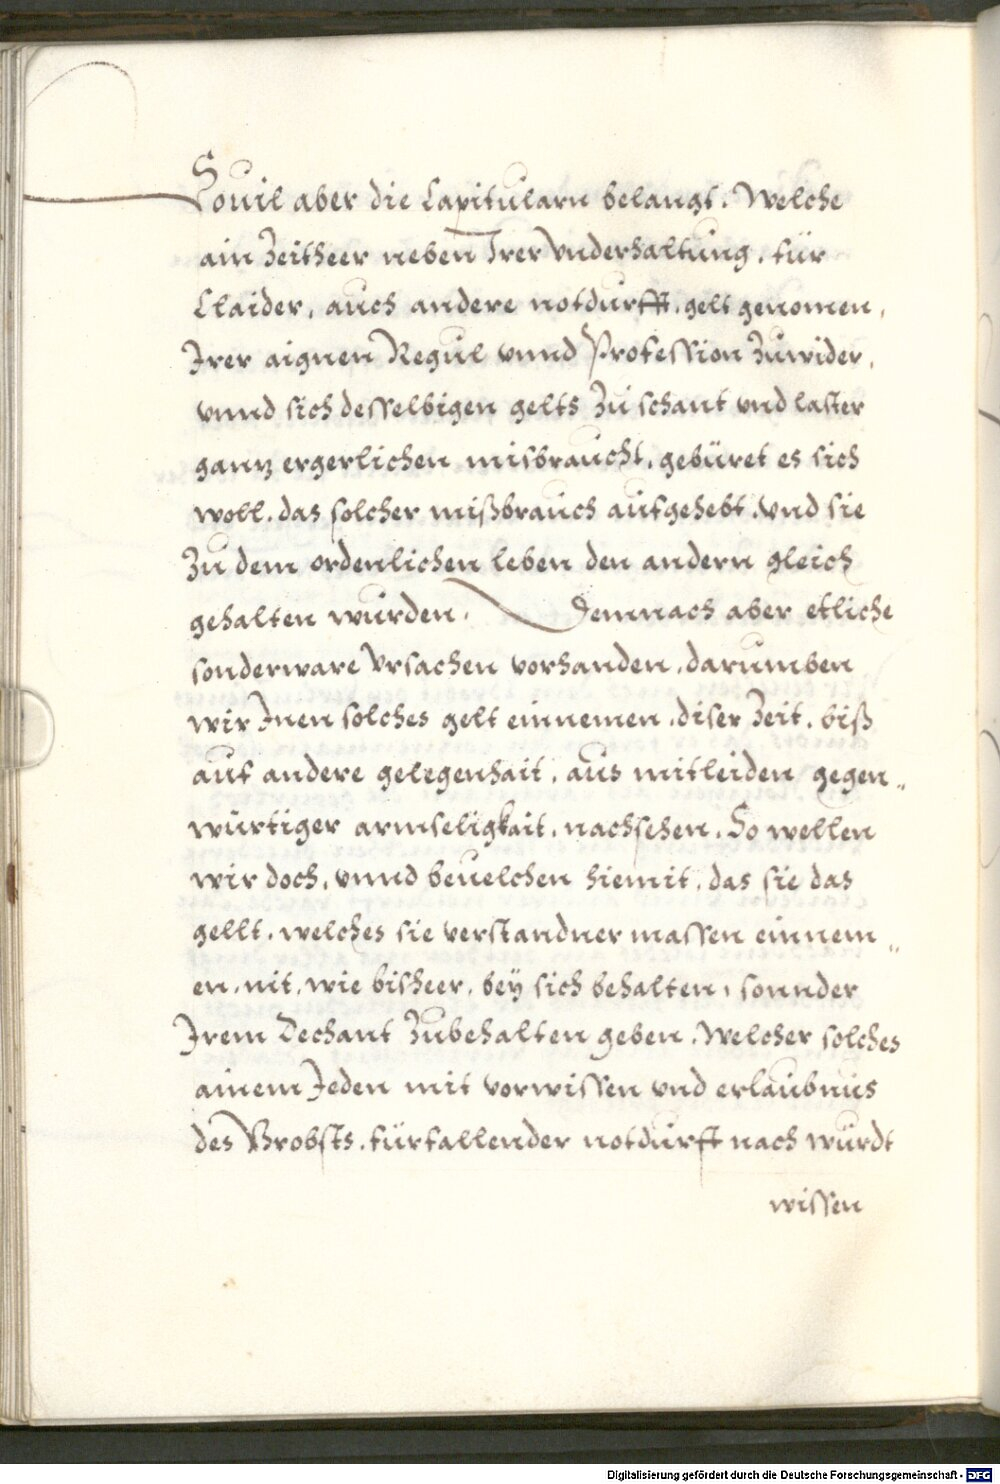 Souil aber die Capitularn belangt. Welche
ain Zeitheer neben Irer Vnderhaltung, für
Claider, auch andere notdurfft, gelt genomen,
Irer aignen Regul vnnd Profession Zuwider,
vnnd sich desselbigen gelts Zu schant vnd laster
ganz ergerlichen misbraucht, gebüret es sich
woll, das solcher mißbrauch aufgehebt, vnd sie
Zu dem ordenlichen leben den andern gleich
gehalten wurden. Demnach aber etliche
sonderware Vrsachen vorhanden, darumben
wir Inen solches gelt einnemen, diser Zeit, biß
auf andere gelegenhait, aus mitleiden gegen„
würtiger armseligkait, nachsehen. So wellen
wir doch, vnnd beuelchen hiemit, das sie das
gellt, welches sie verstandner massen einnem„
en, nit, wie bisheer, bey sich behalten, sonnder
Irem Dechant Zubehalten geben, Welcher solches
ainem Jeden mit vorwissen vnd erlaubnus
des Brobsts, fürfallender notdurfft nach wurdt
wissen
Digitalisierung gefördert durch die Deutsche Forschungsgemeinschaft - DFG